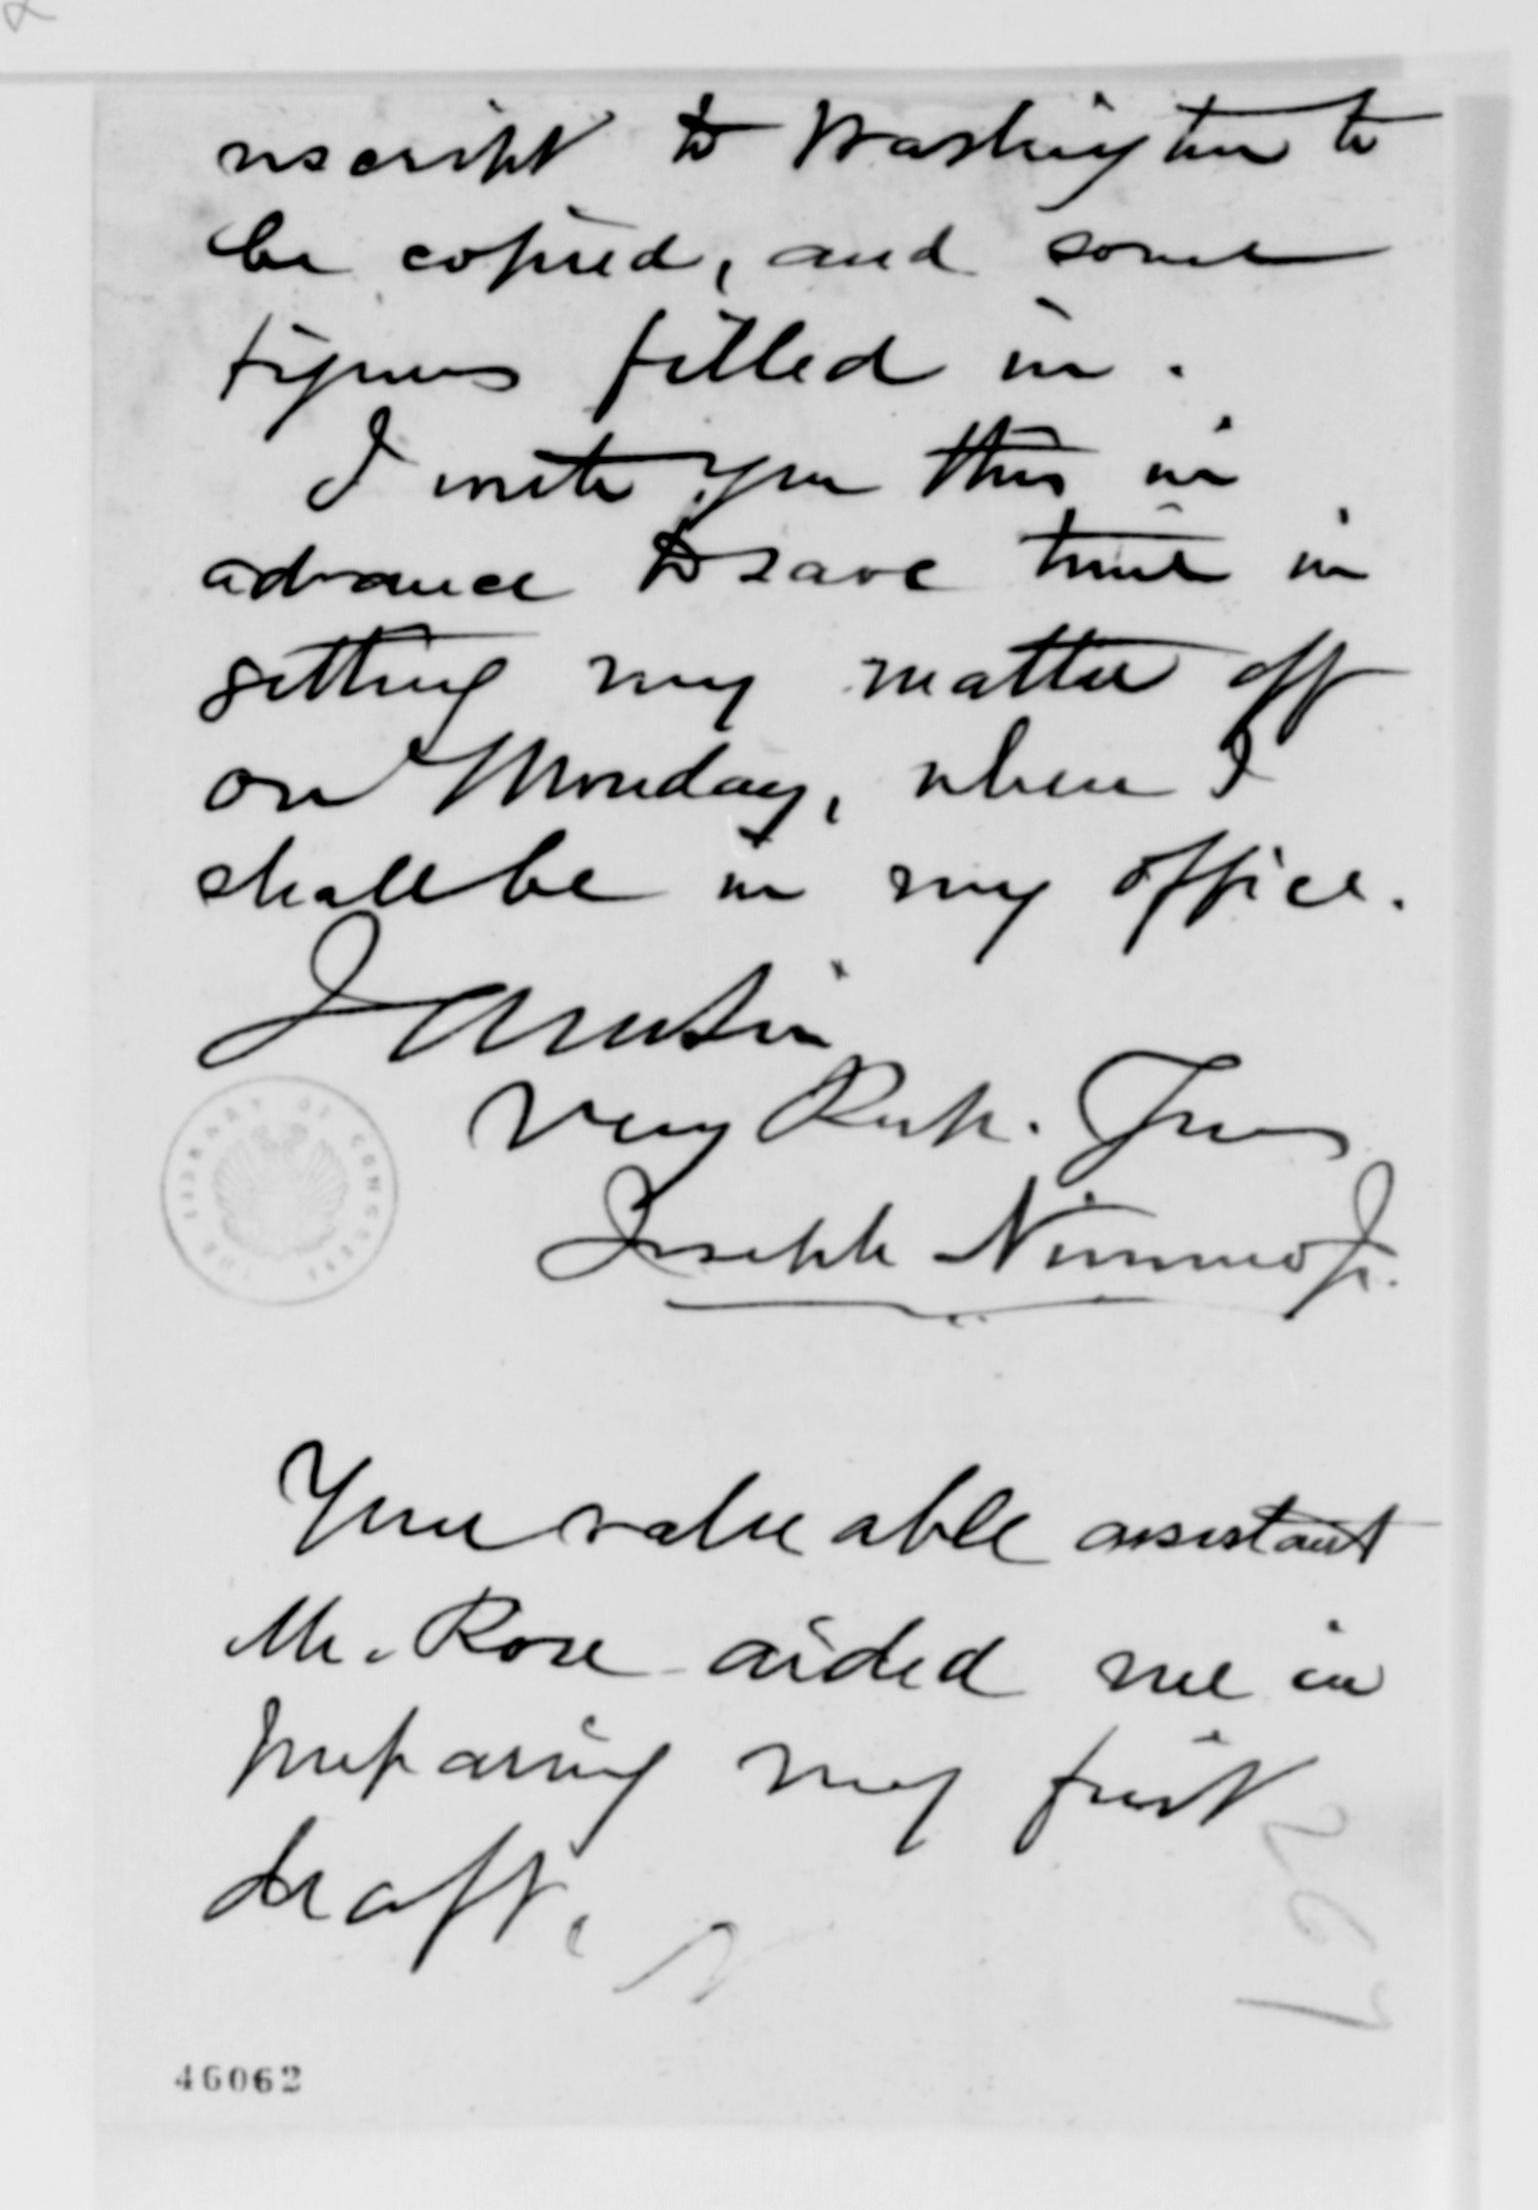 nuscript to Washington to
be copied, and some
figures filled in.
I write you this in
advance to save time in
getting my matter off
on Monday, when I
shall be in my office.
I am Sir
Very Resp. Truly
Joseph Nimmo Jr.
THE LIBRARY OF CONGRESS
Your valuable assistant
Mr. Rose aided me in
preparing my first
draft.
46062